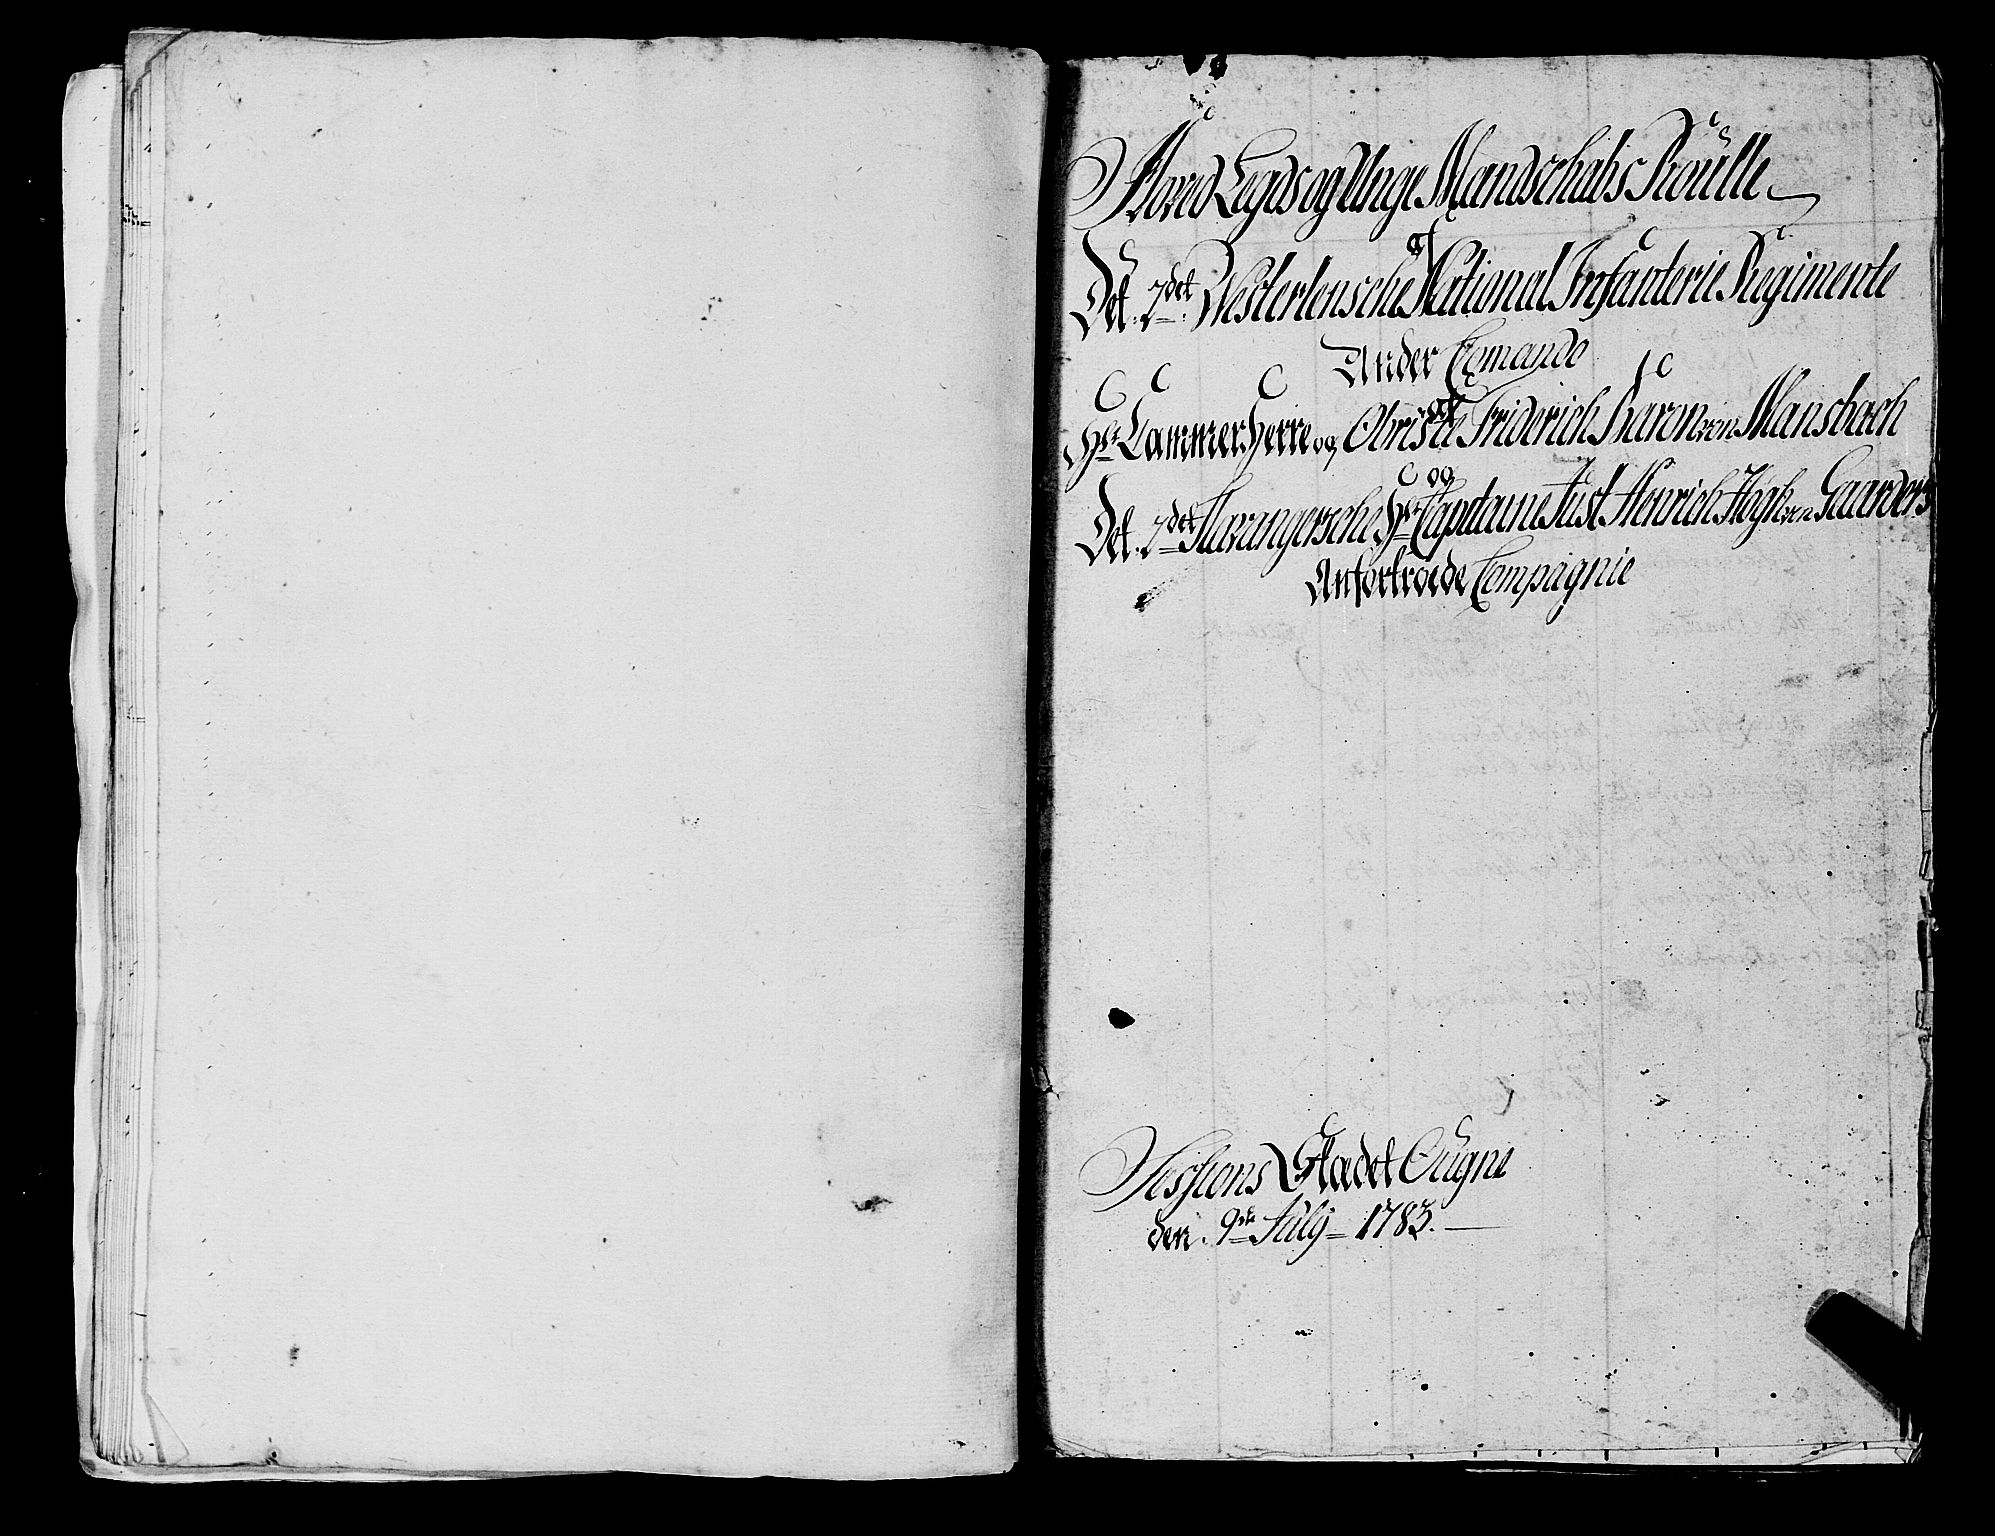 Hoved Legds og Unge Mandschabs Roulle
af
Det. 2det. Westerlensche National Infanterie Regimente
Under Comando
af
Hr. Cammer Herre og Obriste Friderich Baron von Mansbach
og
Det. 2det Stavangersche Hr. Capitaine Just Henrich Høgh von Gaarders
Anfortroede Compagnie
Sessions Stædet Ougne
den. 9de July 1783.